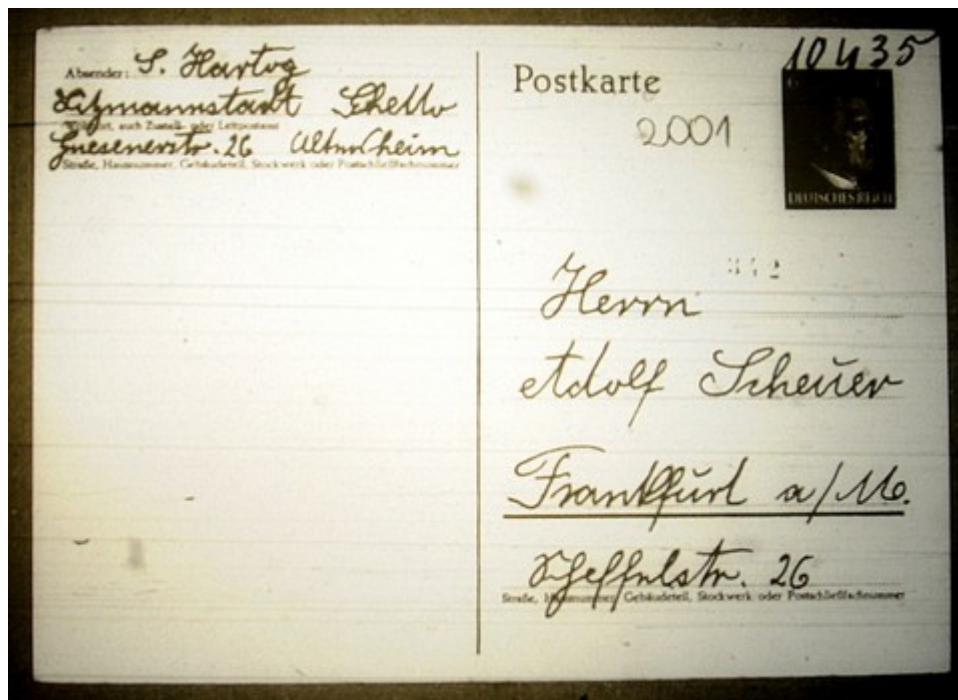 Absender: S. Hartog
Litzmannstadt Ghetto
Wohnort, auch Zustell- oder Leitpostamt
Gnesenerstr. 26 Altersheim
Straße, Hausnummer, Gebäudeteil, Stockwerk oder Postschließfachnummer
Postkarte
10435
2001
6
DEUTSCHES REICH
342
Herrn
Adolf Scheuer
Frankfurt a/M.
Scheffelstr. 26
Straße, Hausnummer, Gebäudeteil, Stockwerk oder Postschließfachnummer